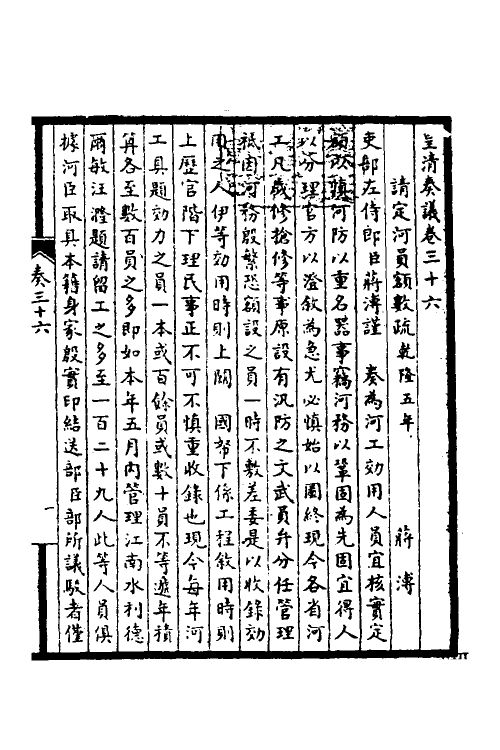 皇清奏議卷三十六
請定河員額數疏 乾隆五年 蔣溥
吏部左侍郎臣蔣溥謹 奏為河工効用人員宜核實定
額以慎河防以重名器事竊河務以鞏固為先固宜得人
以分理官方以澄敘為急尤必慎始以圖終現今各省河
工凡歲修搶修等事原設有汛防之文武員弁分任管理
祗因河務殷繁恐額設之員一時不敷差委是以收錄効
用之人伊等効用時則上關 國帑下係工程敘用時則
上歷官階下理民事正不可不慎重收錄也現今每年河
工具題効力之員一本或百餘員或數十員不等遞年積
算各至數百員之多即如本年五月內管理江南水利德
爾敏汪漋題請留工之多至一百二十九人此等人員俱
據河臣取具本籍身家殷實印結送部臣部所議駁者僅
奏三十六
一